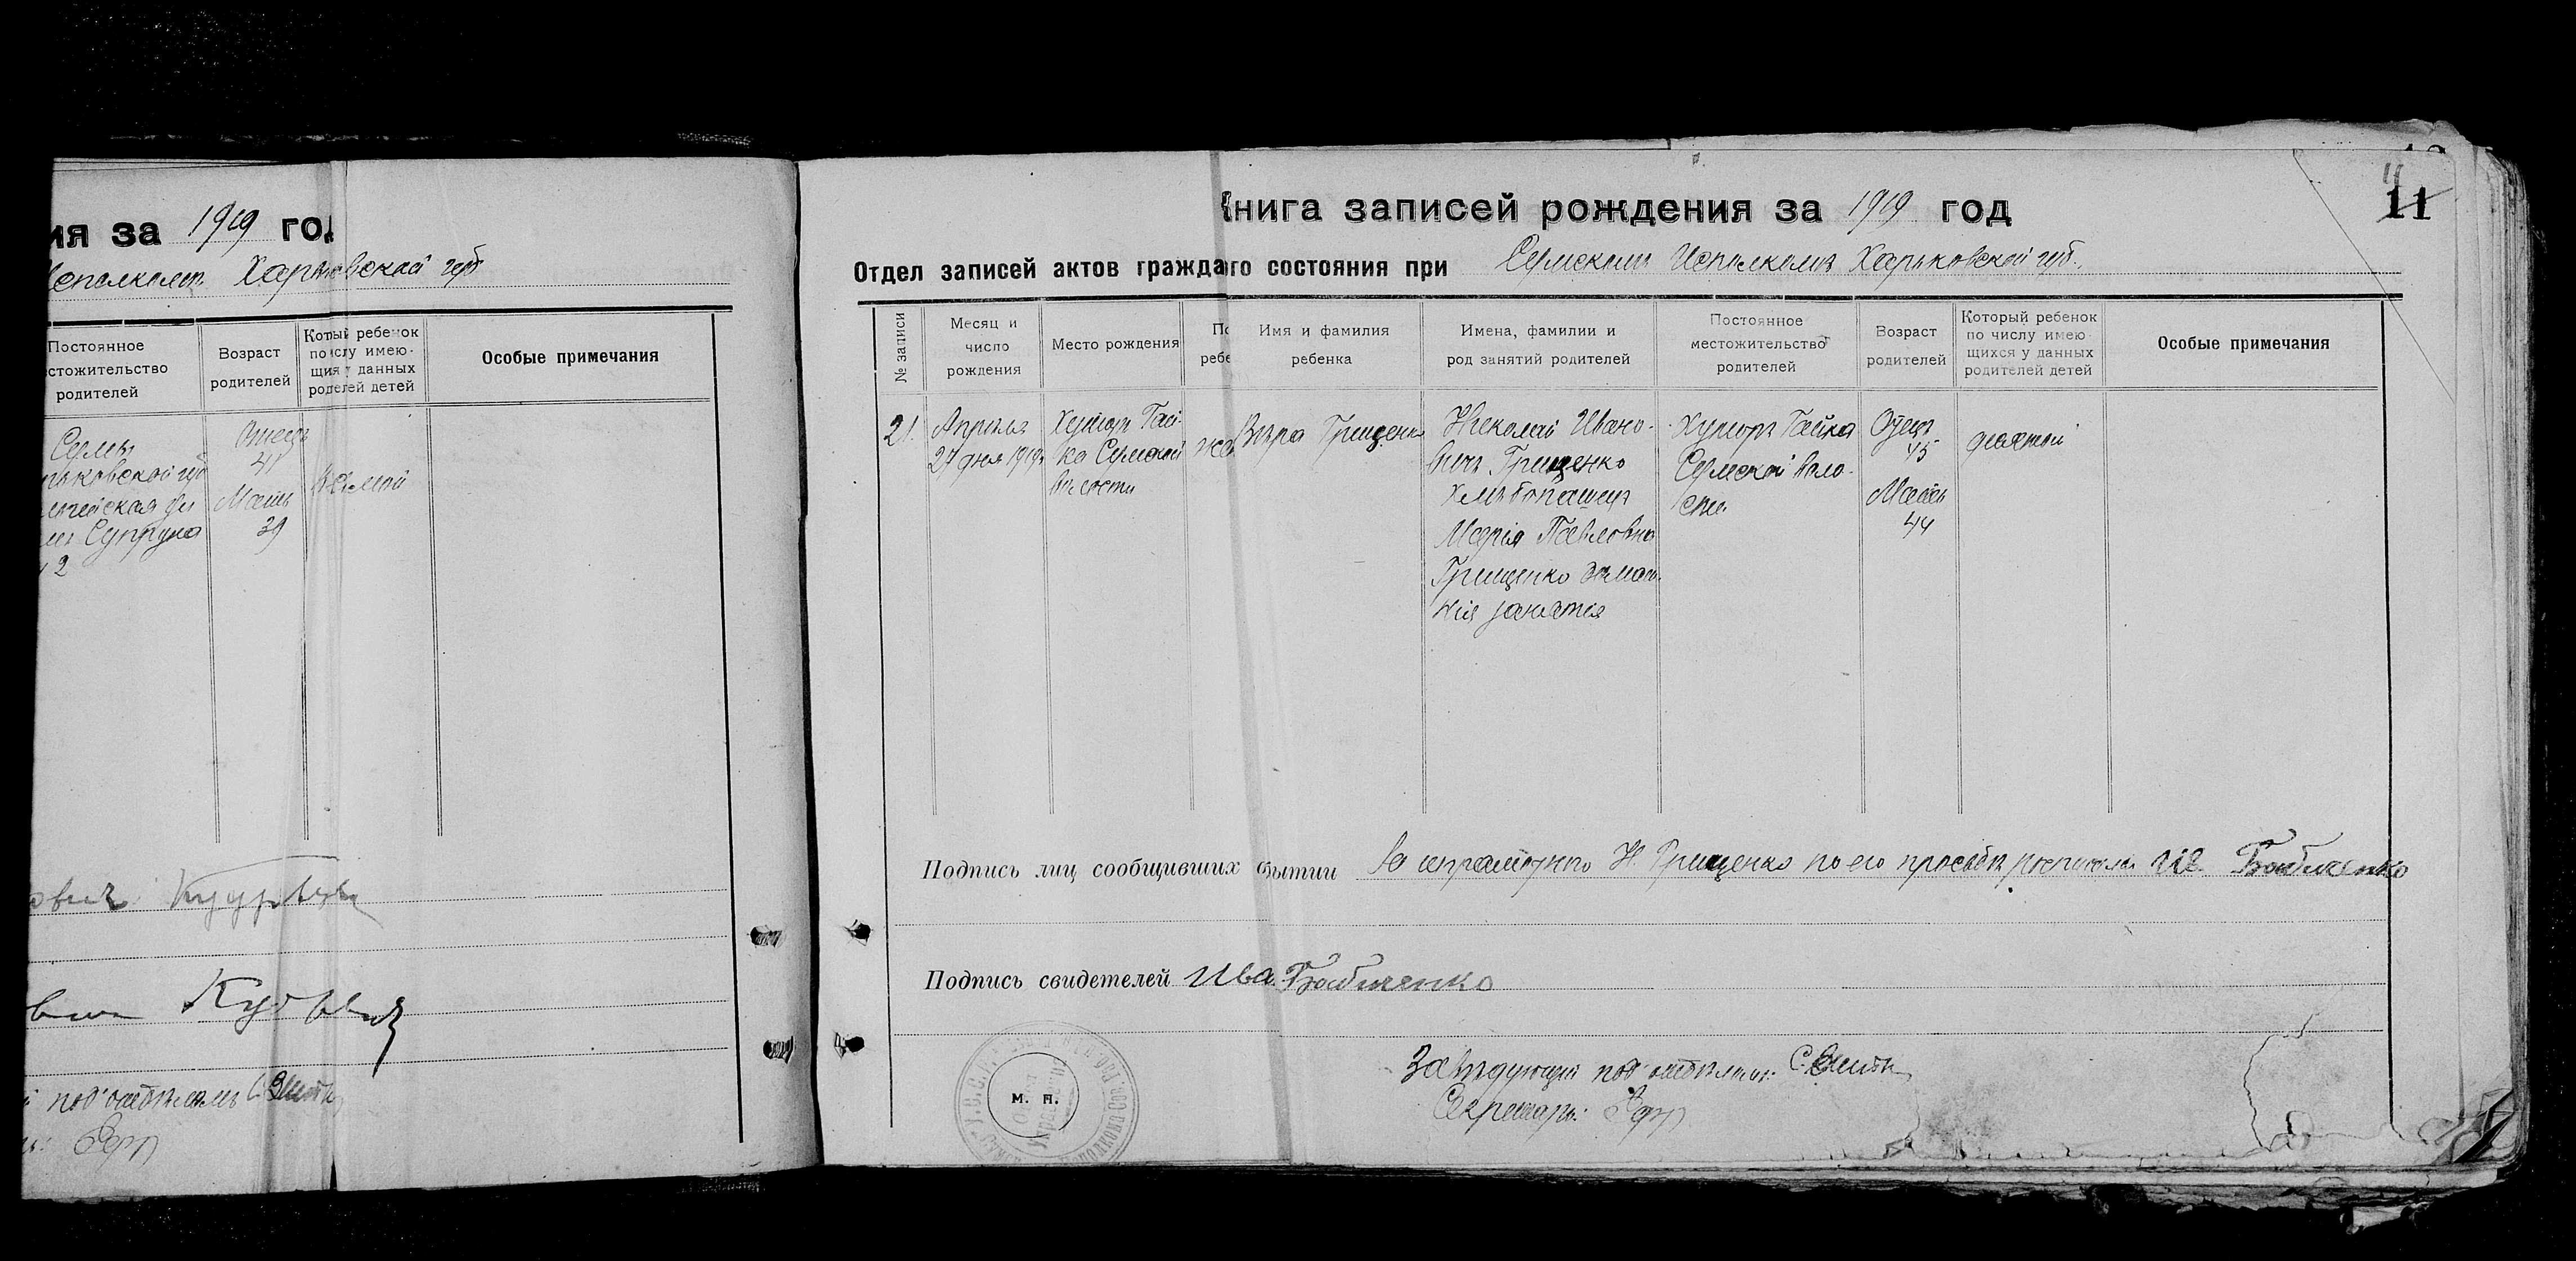 ия за 1919 год
Исполкомъ Харьковской губ
Постоянное
стожительство
родителей
Возраст
родителей
ребенок
имею-
у данных
детей
Особые примечания
Сумы
рьковской губ
Супруна
2
Отецъ
41
Мать
39
подъотдѣломъ
11
11
Книга записей рождения за 1919 год
Отдел записей актов гражда го состояния при Сумскомъ Исполкомъ Харьковской губ.
№ записи
Месяц и
число
рождения
Место рождения
По
ребе
Имя и фамилия
ребенка
Имена, фамилии и
род занятий родителей
Постоянное
местожительство
родителей
Возраст
родителей
Который ребенок
по числу имею-
щихся у данных
родителей детей
Особые примечания
21.
Апрѣля
27 дня 1919г.
Хуторъ Гай-
ка Сумской
волости
же
Вѣра Грищенко
Николай Ивано-
вичъ Грищенко
Хлѣбопашецъ
Марія Павловна
Грищенко домаш-
нія занятія
Хуторъ Гайка
Сумской воло-
сти
Отецъ
45
Мать
44
десятый
Подпись лиц сообщивших бытии За неграмотнаго Н. Грищенко по его просьбѣ росписался Ив. Бабиченко
Подпись свидетелей Ива Бабиченко
М. П.
Завѣдующій подъотдѣломъ:
Секретарь: